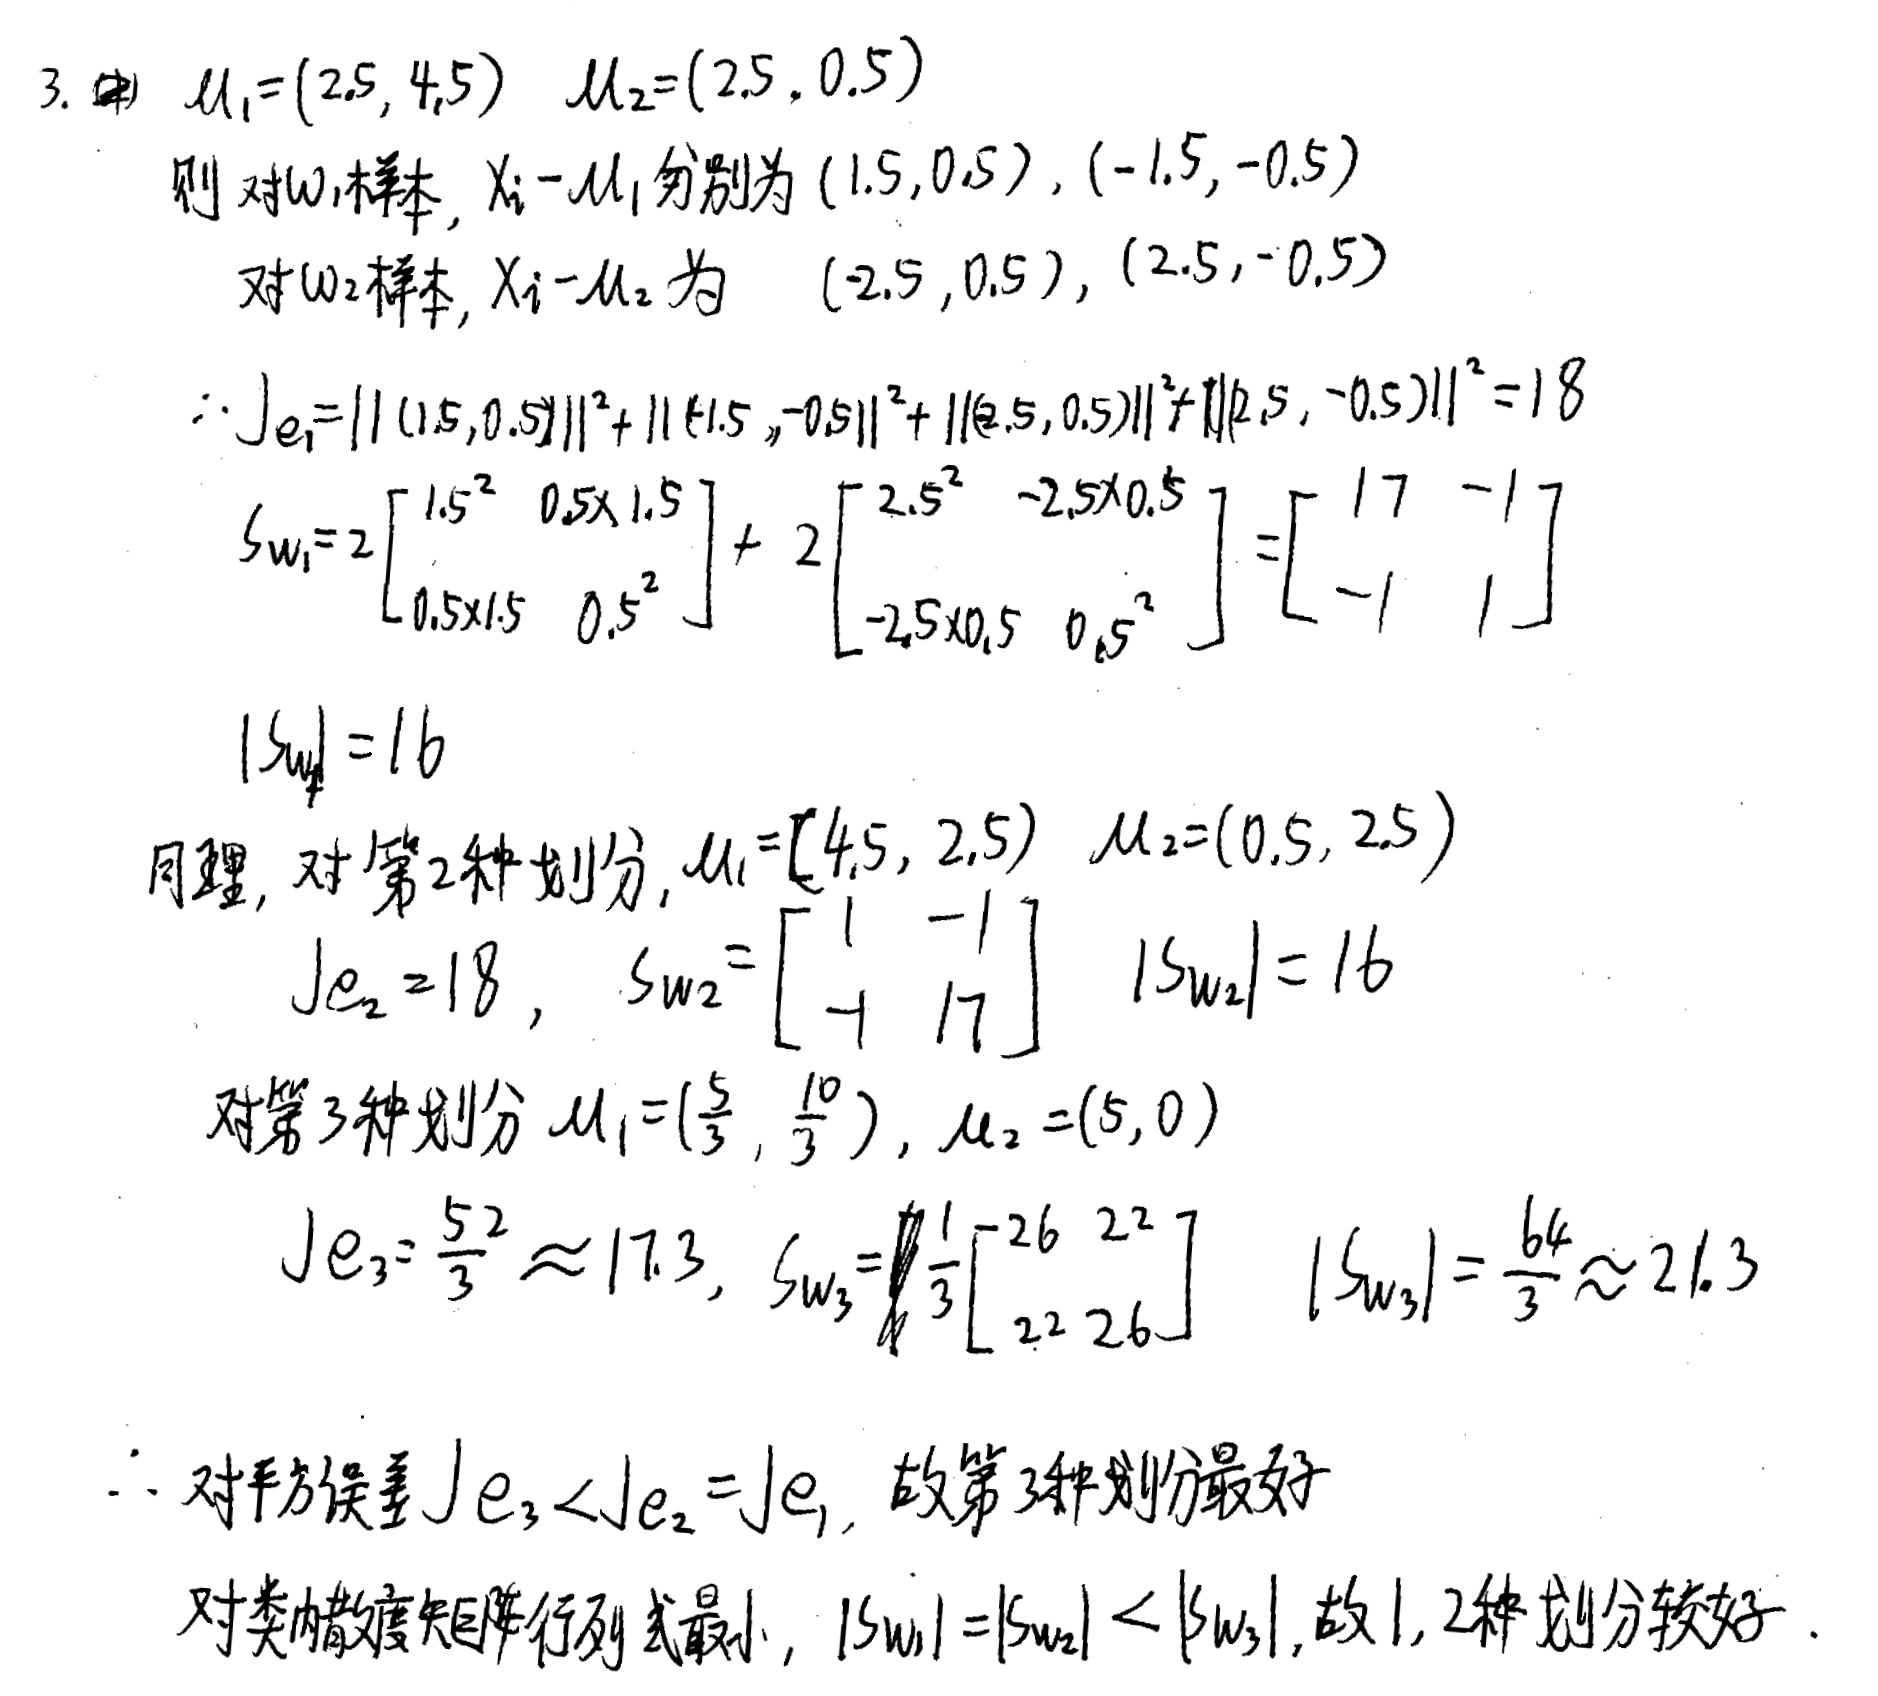 3. μ₁=(2.5, 4.5) μ₂=(2.5, 0.5)
则 对ω₁样本, Xi-μ₁分别为 (1.5, 0.5), (-1.5, -0.5)
对ω₂样本, Xi-μ₂ 为 (-2.5, 0.5), (2.5, -0.5)
∴ Je₁=||(1.5, 0.5)||²+||(-1.5, -0.5||²+||(-2.5, 0.5)||²+||(2.5, -0.5)||²=18
Sw₁=2[1.5² 0.5×1.5; 0.5×1.5 0.5²] + 2[2.5² -2.5×0.5; -2.5×0.5 0.5²] = [17 -1; -1 1]
|Sw₁|=16
同理, 对第2种划分, μ₁=(4.5, 2.5) μ₂=(0.5, 2.5)
Je₂=18, Sw₂=[1 -1; -1 17] |Sw₂|=16
对第3种划分 μ₁=(5/3, 10/3), μ₂=(5, 0)
Je₃=52/3≈17.3, Sw₃=1/3[26 22; 22 26] |Sw₃|=64/3≈21.3
∴ 对平方误差 Je₃<Je₂=Je₁, 故第3种划分最好
对类内散度矩阵行列式最小, |Sw₁|=|Sw₂|<|Sw₃|, 故1, 2种划分较好.